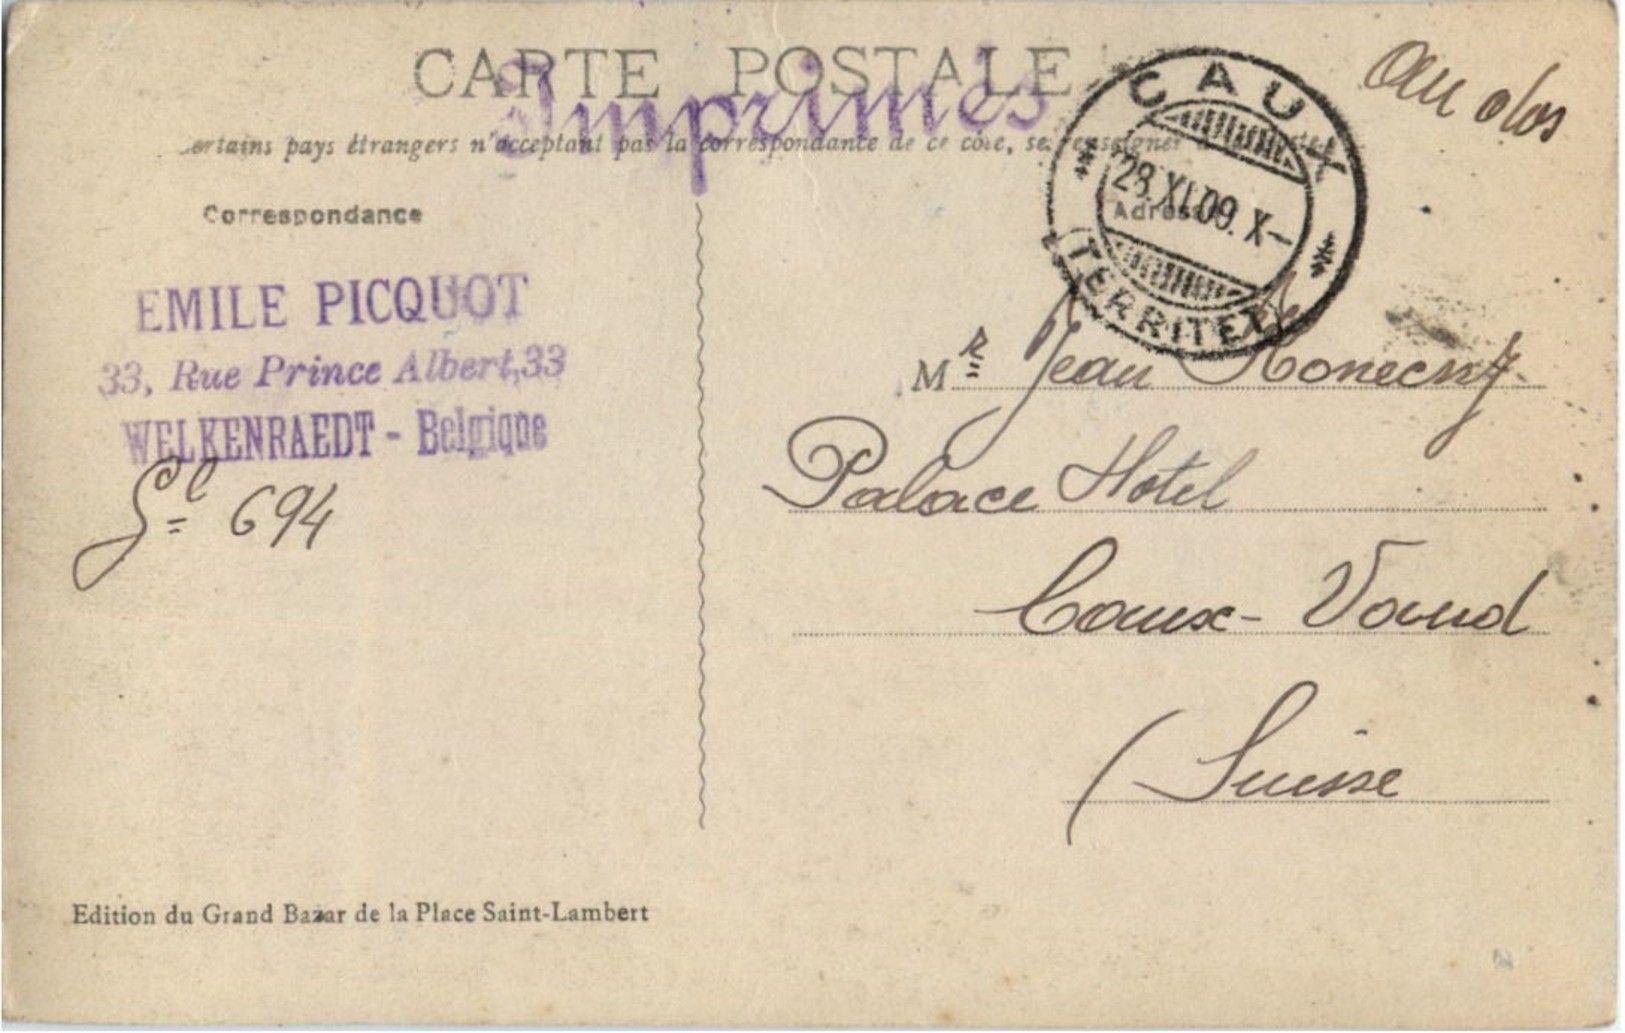 CARTE POSTALE
Imprimés
au dos
certains pays étrangers n'acceptant pas la correspondance de ce côté, se renseigner
CAUX
28.XI.09. X–
(TERRITET)
Correspondance
Adresse
EMILE PICQUOT
33, Rue Prince Albert, 33
WELKENRAEDT - Belgique
Sl 694
MR Jean
Palace Hotel
Caux - Vaud
(Suisse
Edition du Grand Bazar de la Place Saint-Lambert